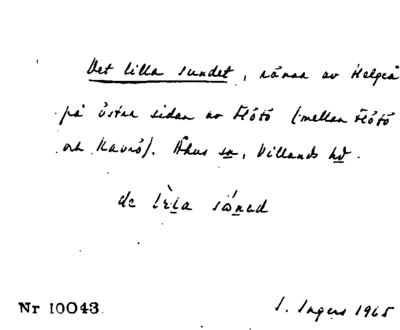 Det lilla sundet, ränna av Helgeå
på östra sidan av Flötö (mellan Flötö
och Kavrö). Åhus sn, Villands hd.
de lìla sónəd
Nr 10043.
I. Ingers 1965